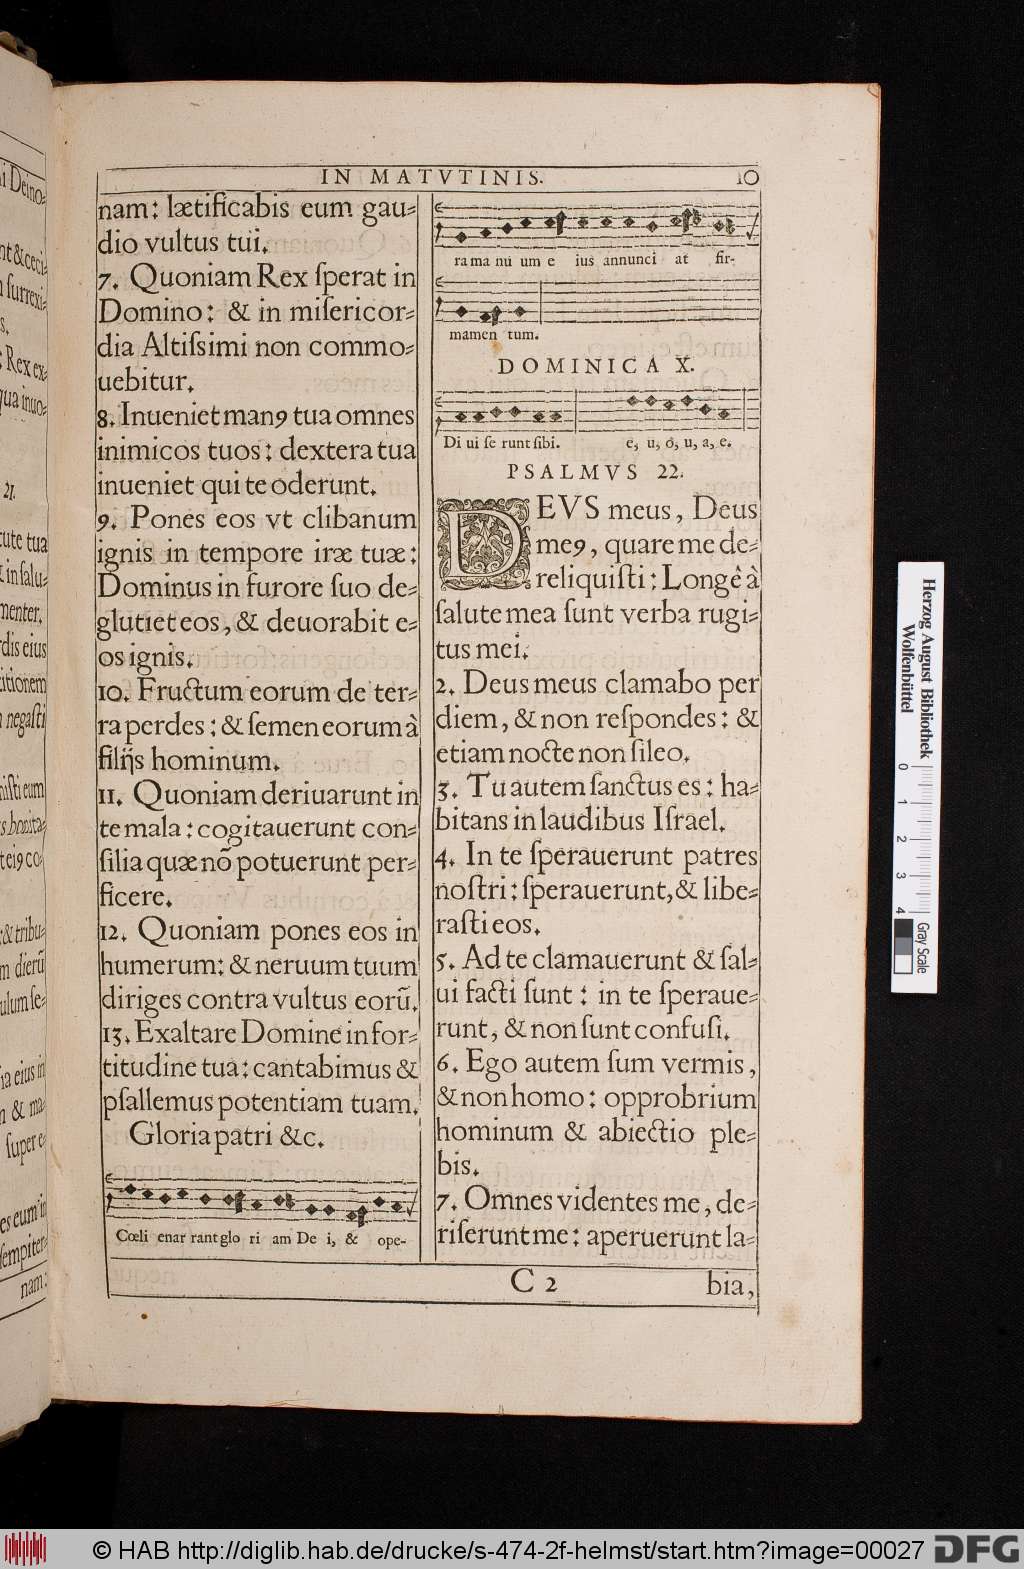 IN MATVTINIS. 10
nam: lætificabis eum gau-
dio vultus tui.
7. Quoniam Rex ſperat in
Domino: & in miſericor-
dia Altiſsimi non commo-
uebitur.
8. Inueniet manꝰ tua omnes
inimicos tuos: dextera tua
inueniet qui te oderunt.
9. Pones eos vt clibanum
ignis in tempore iræ tuæ:
Dominus in furore ſuo de-
glutiet eos, & deuorabit e-
os ignis.
10. Fructum eorum de ter-
ra perdes: & ſemen eorum à
filijs hominum.
11. Quoniam deriuarunt in
te mala: cogitauerunt con-
ſilia quæ nõ potuerunt per-
ficere.
12. Quoniam pones eos in
humerum: & neruum tuum
diriges contra vultus eorũ.
13. Exaltare Domine in for-
titudine tua: cantabimus &
pſallemus potentiam tuam.
Gloria patri &c.
Cœli enar rant glo ri am De i, & ope-
ra ma nu um e ius annunci at fir-
mamen tum.
DOMINICA X.
Di ui ſe runt ſibi. e, u, o, u, a, e.
PSALMVS 22.
DEVS meus, Deus
meꝰ, quare me de-
reliquiſti: Longè à
ſalute mea ſunt verba rugi-
tus mei.
2. Deus meus clamabo per
diem, & non reſpondes: &
etiam nocte non ſileo.
3. Tu autem ſanctus es: ha-
bitans in laudibus Iſrael.
4. In te ſperauerunt patres
noſtri: ſperauerunt, & libe-
raſti eos.
5. Ad te clamauerunt & ſal-
ui facti ſunt: in te ſperaue-
runt, & non ſunt confuſi.
6. Ego autem ſum vermis,
& non homo: opprobrium
hominum & abiectio ple-
bis.
7. Omnes videntes me, de-
riſerunt me: aperuerunt la-
C 2 bia,
Herzog August Bibliothek
Wolfenbüttel
0 1 2 3 4
Gray Scale
© HAB http://diglib.hab.de/drucke/s-474-2f-helmst/start.htm?image=00027 DFG